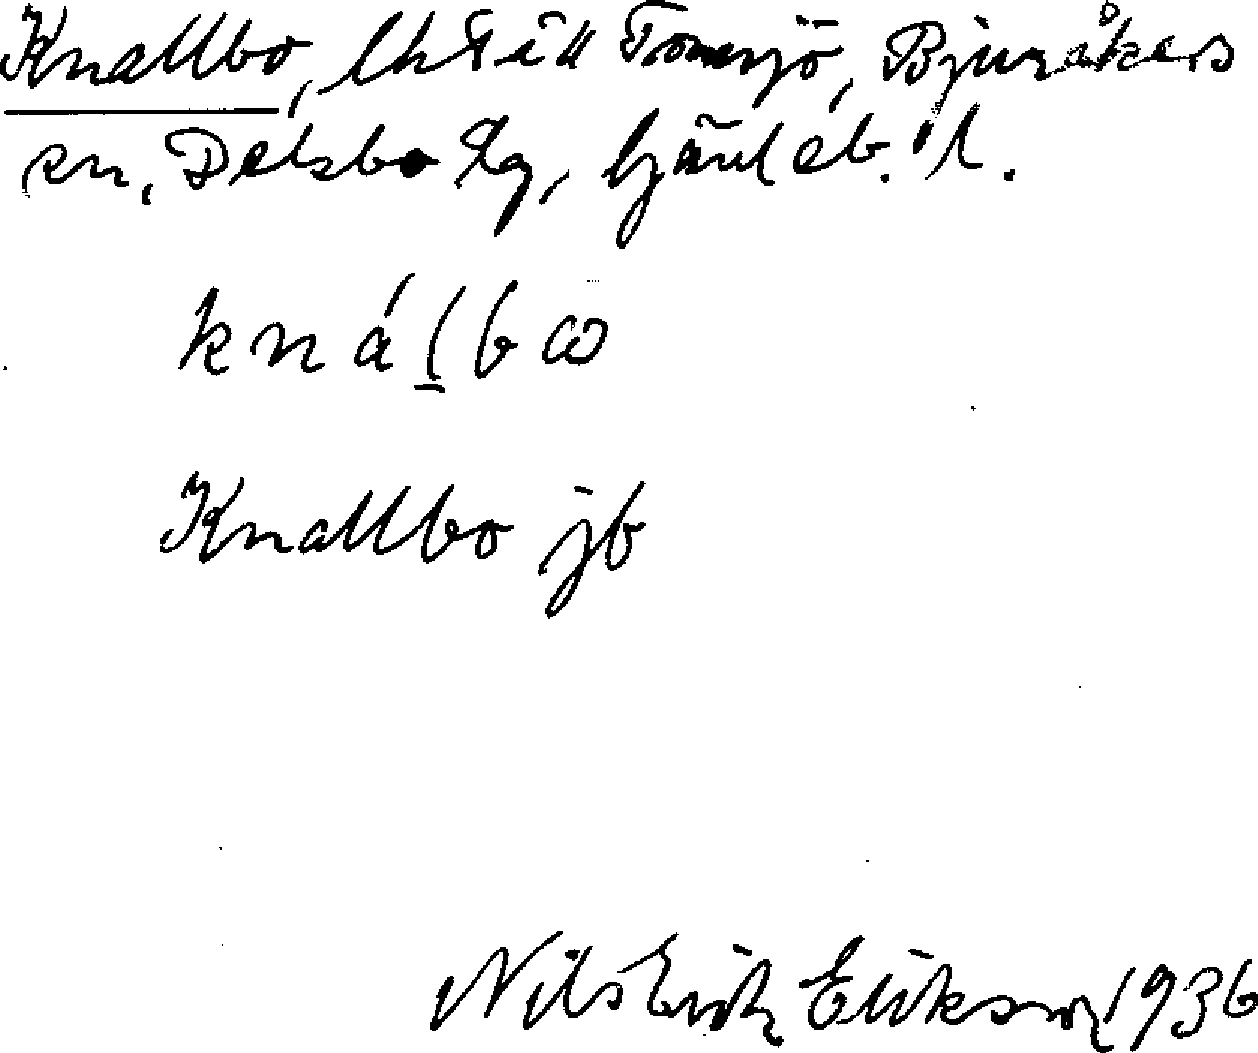 Knallbo, lht i Tomsjö, Bjuråkers
sn, Delsbo tg, Gävleb. l.
knálbω
Knallbo jb
Nils Erik Eriksson 1936